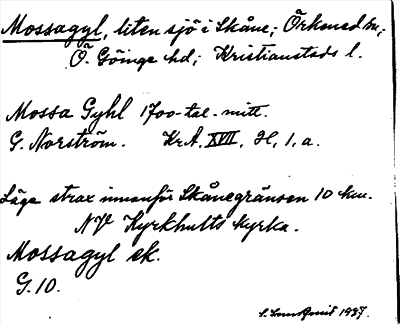 Mossagyl, liten sjö i Skåne; Örkened sn;
Ö. Göinge hd; Kristianstads l.
Mossa Gyhl 1700-tal. mitt.
G. Norström. Kr.A. XVII, H, 1, a.
Läge strax innanför Skånegränsen 10 km.
NV Kyrkhults kyrka.
Mossagyl ek.
G. 10.
1937.